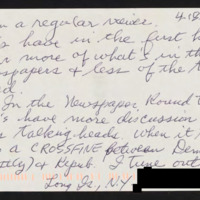 m a regular viewer.
4.19
s have in the first h
r more of what's in th
spapers & less of the t
d.
In the Newspaper Round t
's have more discussion
talking heads, when it
a CROSSFIRE between Dem
& Repub. I tune out
Long Is, N.Y.